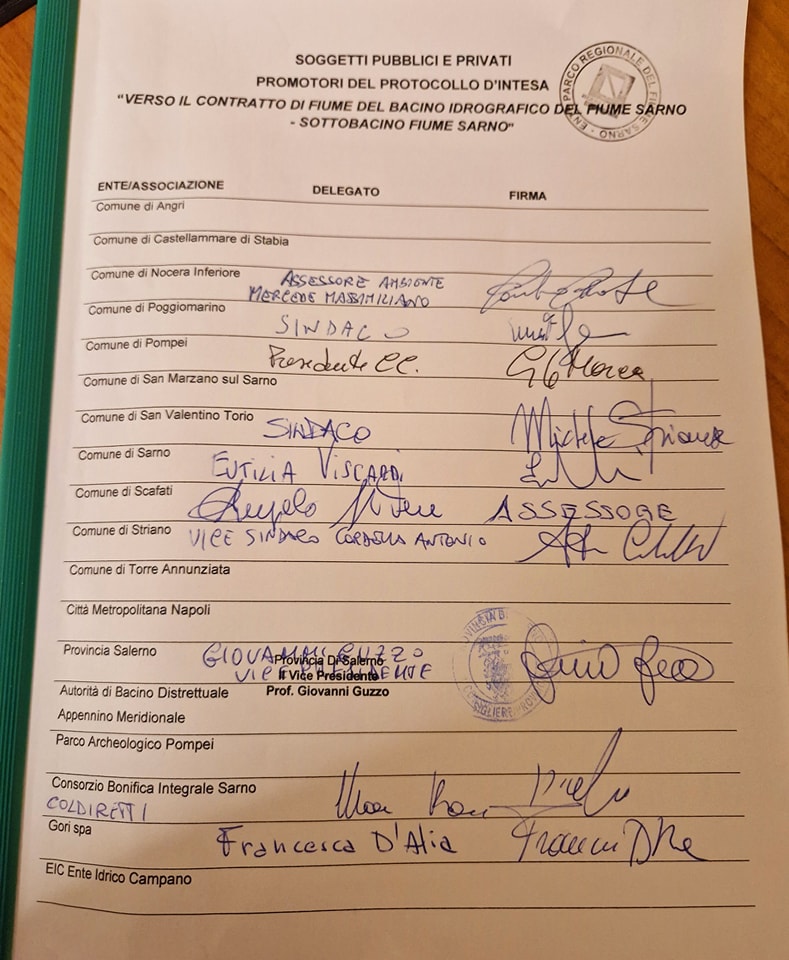 SOGGETTI PUBBLICI E PRIVATI
PROMOTORI DEL PROTOCOLLO D'INTESA
"VERSO IL CONTRATTO DI FIUME DEL BACINO IDROGRAFICO DEL FIUME SARNO
- SOTTOBACINO FIUME SARNO"
PARCO REGIONALE DEL FIUME SARNO
ENTE/ASSOCIAZIONE DELEGATO FIRMA
Comune di Angri
Comune di Castellammare di Stabia
Comune di Nocera Inferiore ASSESSORE AMBIENTE
MERCEDE MASSIMILIANO
Comune di Poggiomarino SINDACO
Comune di Pompei Presidente CC.
Comune di San Marzano sul Sarno
Comune di San Valentino Torio SINDACO Michele Strianese
Comune di Sarno EUTILIA VISCARDI
Comune di Scafati Angelo ASSESSORE
Comune di Striano VICE SINDACO CORDELLA ANTONIO
Comune di Torre Annunziata
Città Metropolitana Napoli
Provincia Salerno GIOVANNI GUZZO
VICE PRESIDENTE
Provincia Di Salerno
Il Vice Presidente
Prof. Giovanni Guzzo
Autorità di Bacino Distrettuale
Appennino Meridionale
Parco Archeologico Pompei
Consorzio Bonifica Integrale Sarno
COLDIRETTI
Gori spa Francesca D'Alia
EIC Ente Idrico Campano